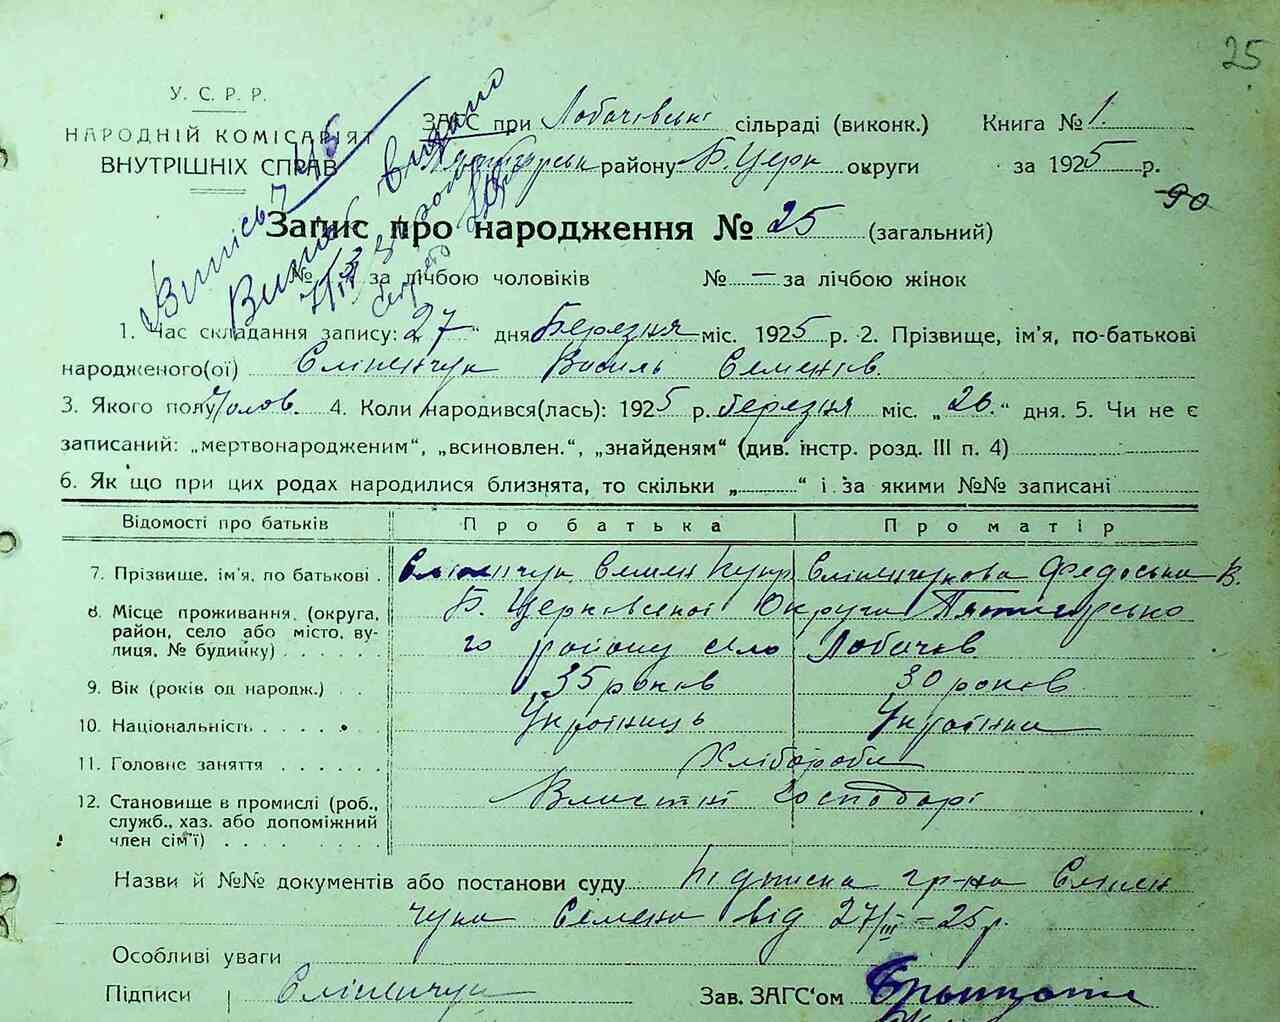 25
У. С. Р. Р.
НАРОДНІЙ КОМІСАРІЯТ
ВНУТРІШНІХ СПРАВ
ЗАГС при Лобачівські сільраді (виконк.) Книга № 1
району Б. Церк округи за 1925 р.
90
Запис про народження № 25 (загальний)
№ 13 за лічбою чоловіків № — за лічбою жінок
1. Час складання запису: 27 " дня Березня міс. 1925 р. 2. Прізвище, ім'я, по-батькові
народженого(ої) Сліпенчук Василь Семенів.
3. Якого полу Чолов. 4. Коли народився(лась): 1925 р. березня міс. „ 26. " дня. 5. Чи не є
записаний: „мертвонародженим", „всиновлен.", „знайденям" (див. інстр. розд. III п. 4)
6. Як що при цих родах народилися близнята, то скільки „ " і за якими №№ записані
Відомості про батьків Про батька Про матір
7. Прізвище, ім'я, по батькові. Сліпенчук Семен Сліпенчукова Федоська В.
8. Місце проживання (округа, район, село або місто, вулиця, № будинку) Б. Церковської Округи Пятигорсько
го району село Лобачів
9. Вік (років од народж.) 35 років 30 років
10. Національність Українець Українка
11. Головне заняття Хлібороби
12. Становище в промислі (роб., Власні Господарі
служб., хаз. або допоміжний
член сім'ї)
Назви й №№ документів або постанови суду Підписка гр-на Сліпен
чука Семена від 27/III–25 р.
Особливі уваги
Підписи Сліпенчук Зав. ЗАГС'ом